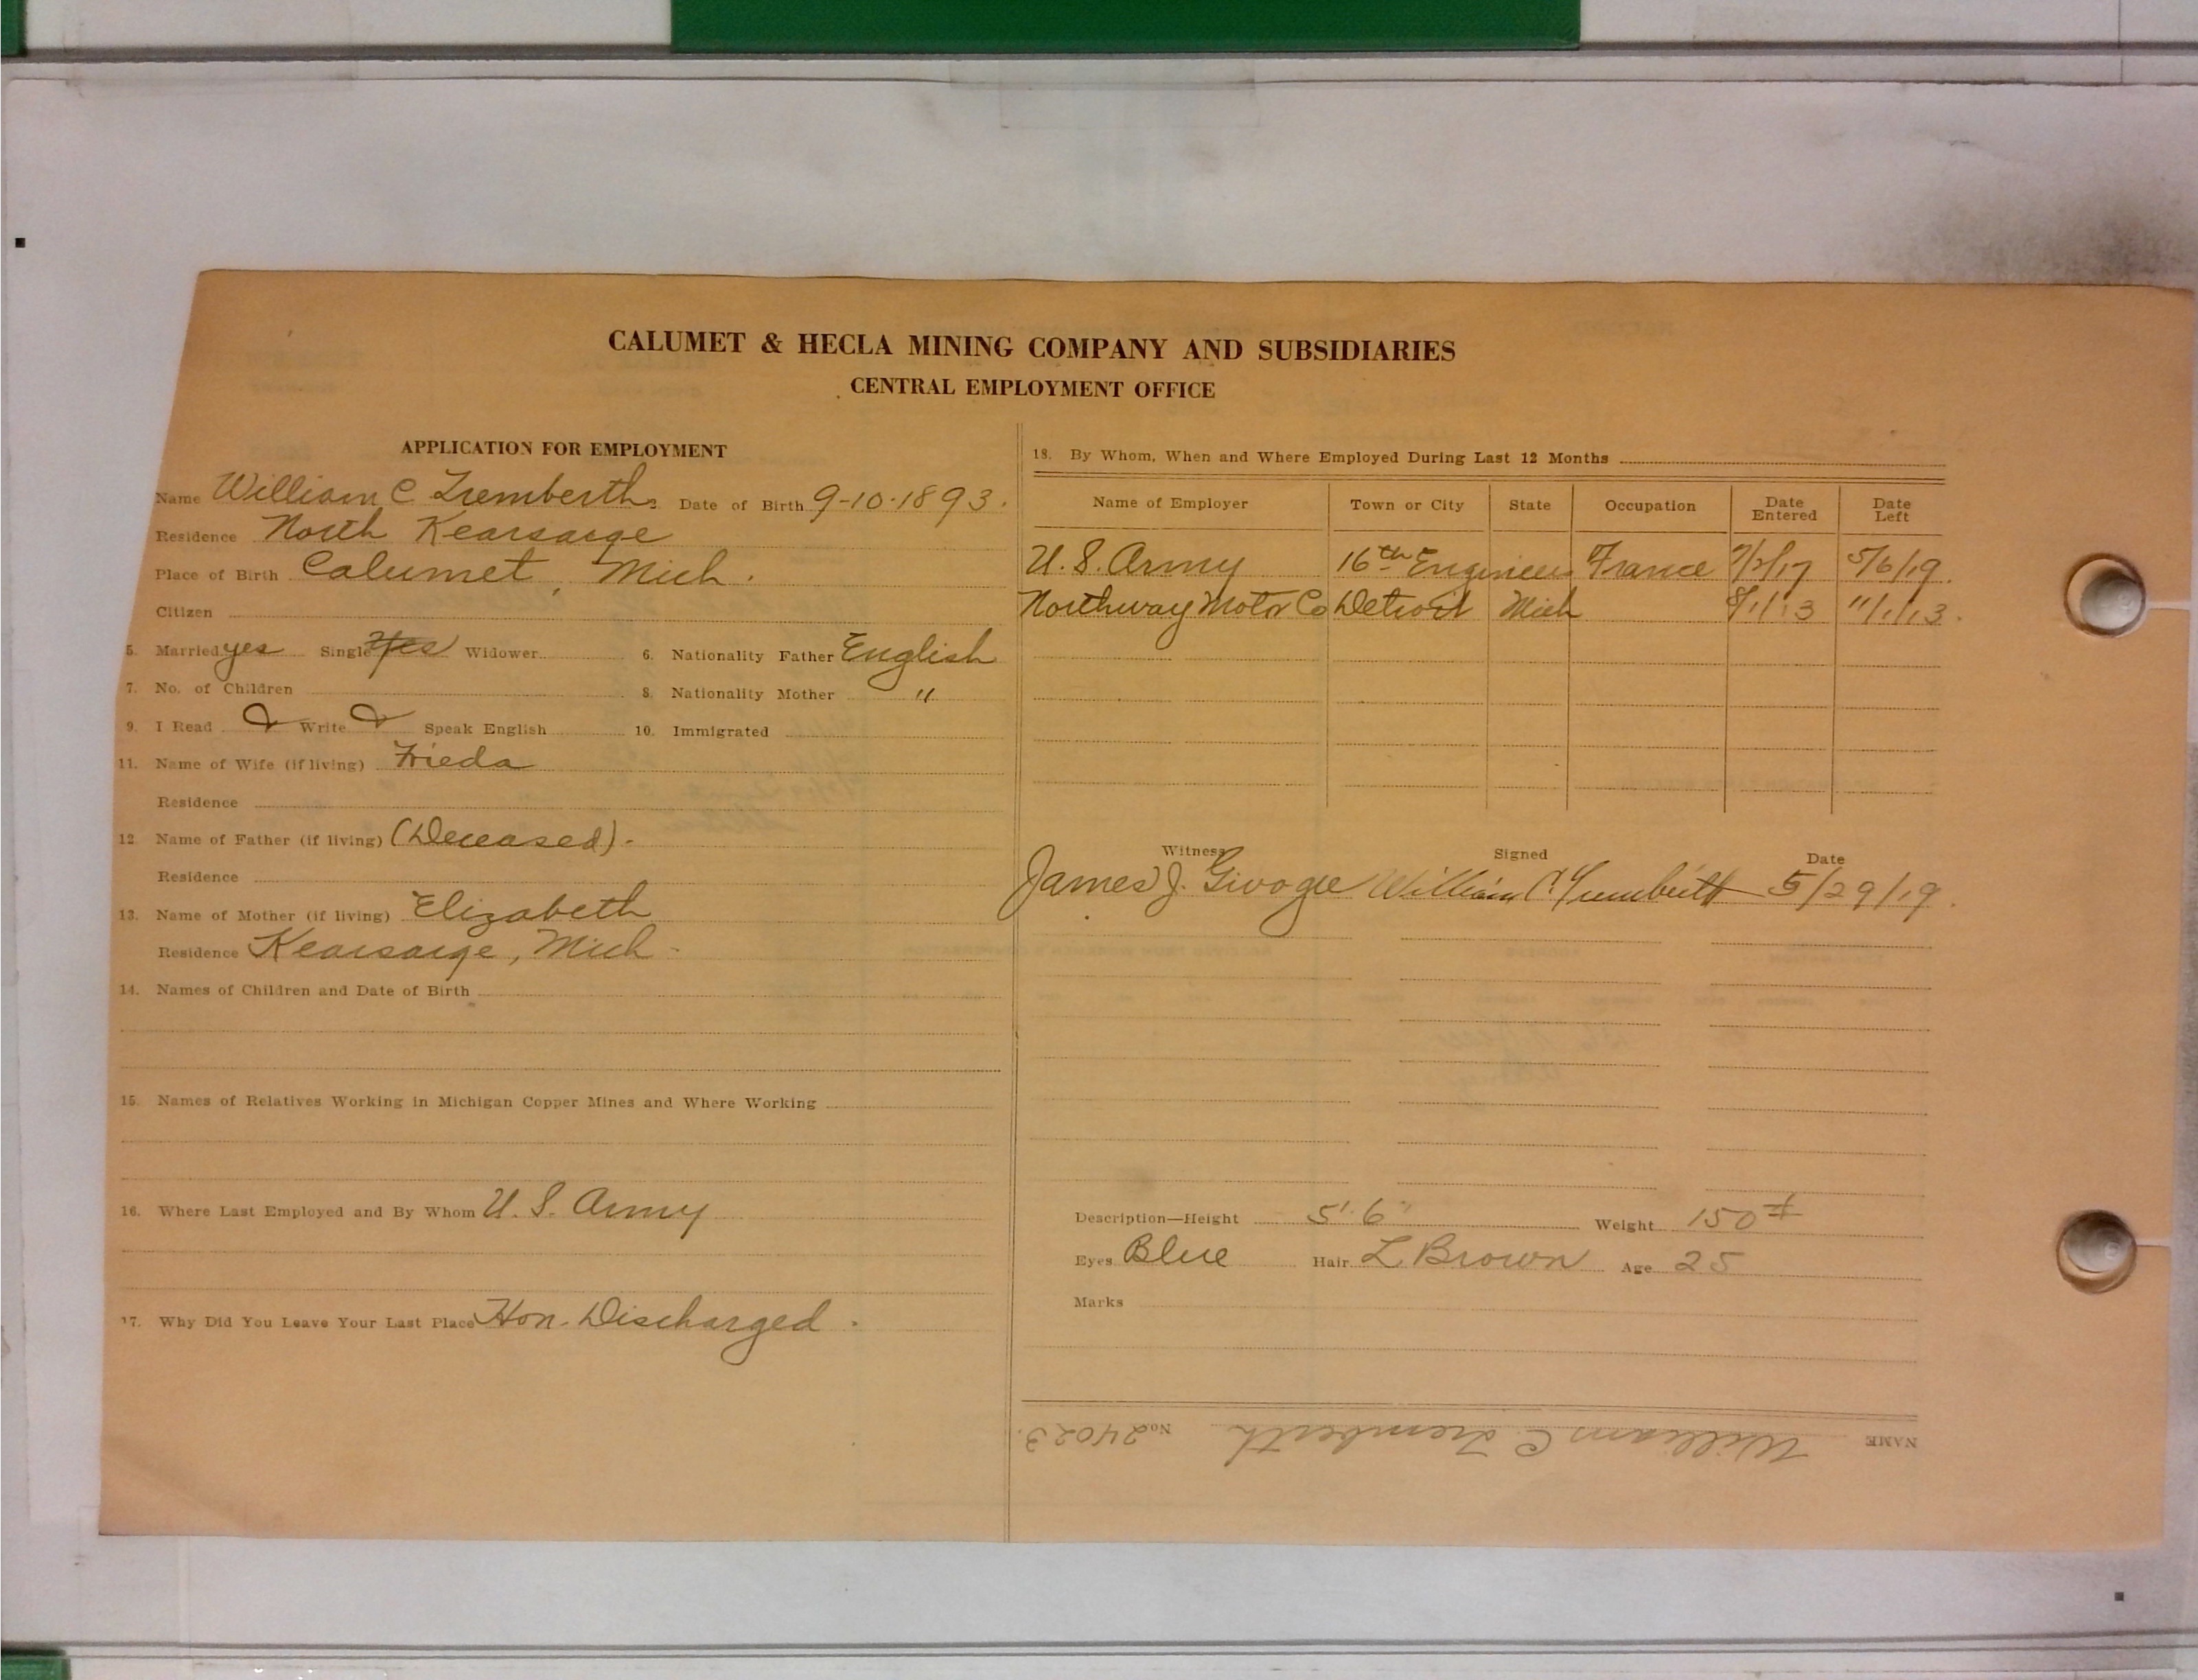 CALUMET & HECLA MINING COMPANY AND SUBSIDIARIES
CENTRAL EMPLOYMENT OFFICE
APPLICATION FOR EMPLOYMENT
Name William C Tremberth. Date of Birth 9-10-1893.
Residence North Kearsarge
Place of Birth Calumet, Mich.
Citizen
5. Married yes Single yes Widower 6. Nationality Father English
7. No. of Children 8. Nationality Mother "
9. I Read Write Speak English 10. Immigrated
11. Name of Wife (if living) Frieda
Residence
12. Name of Father (if living) (Deceased).
Residence
13. Name of Mother (if living) Elizabeth
Residence Kearsarge, Mich
14. Names of Children and Date of Birth
15. Names of Relatives Working in Michigan Copper Mines and Where Working
16. Where Last Employed and By Whom U. S. Army
17. Why Did You Leave Your Last Place Hon. Discharged.
18. By Whom, When and Where Employed During Last 12 Months
Name of Employer Town or City State Occupation Date Entered Date Left
U. S. Army 16th Engineers France 5/6/19.
Northway Motor Co Detroit Mich 8/1/13 11/1/13.
Witness Signed Date
James J. William C. Tremberth 5/29/19.
Description—Height 5' 6" Weight 150 #
Eyes Blue Hair L. Brown Age 25
Marks
NAME William C. Tremberth No. 24023.